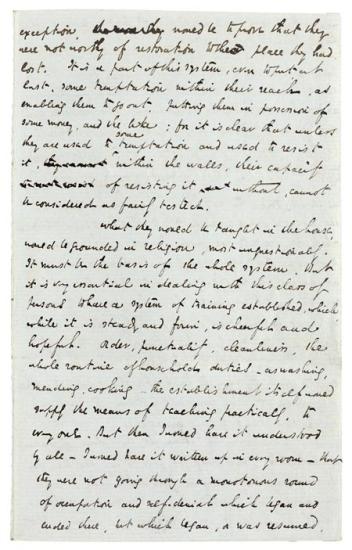 exception, would be to prove that they
were not worthy of restoration to the place they had
lost. It is a part of this system, even to put at
last, some temptation within their reach, as
enabling them to go out, putting them in possession of
some money, and the like; for it is clear that unless
they are used to some temptation and used to resist
it, within the walls, their capacity
of resisting it without, cannot
be considered as fairly tested.
What they would be taught in the house,
would be grounded in religion, most unquestionably.
It must be the basis of the whole system. But
it is very essential in dealing with this class of
persons to have a system of training established, which
while it is steady and firm, is cheerful and
hopeful. Order, punctuality, cleanliness, the
whole routine of household duties - as washing,
mending, cooking - the establishment itself would
supply the means of teaching practically, to
every one. But then I would have it understood
by all - I would have it written up in every room - that
they were not going through a monotonous round
of occupation and self-denial which began and
ended there, but which began, or was resumed,